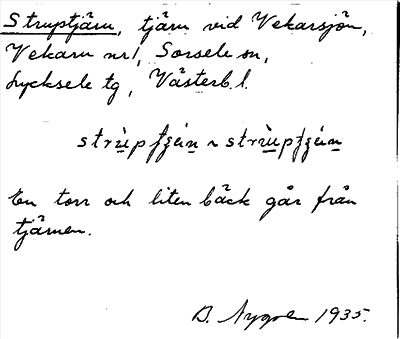 Struptjärn, tjärn vid Vekarsjön,
Vekarn nr 1, Sorsele sn,
Lycksele tg, Västerb. l.
En torr och liten bäck går från
tjärnen.
B. Nygren 1935.